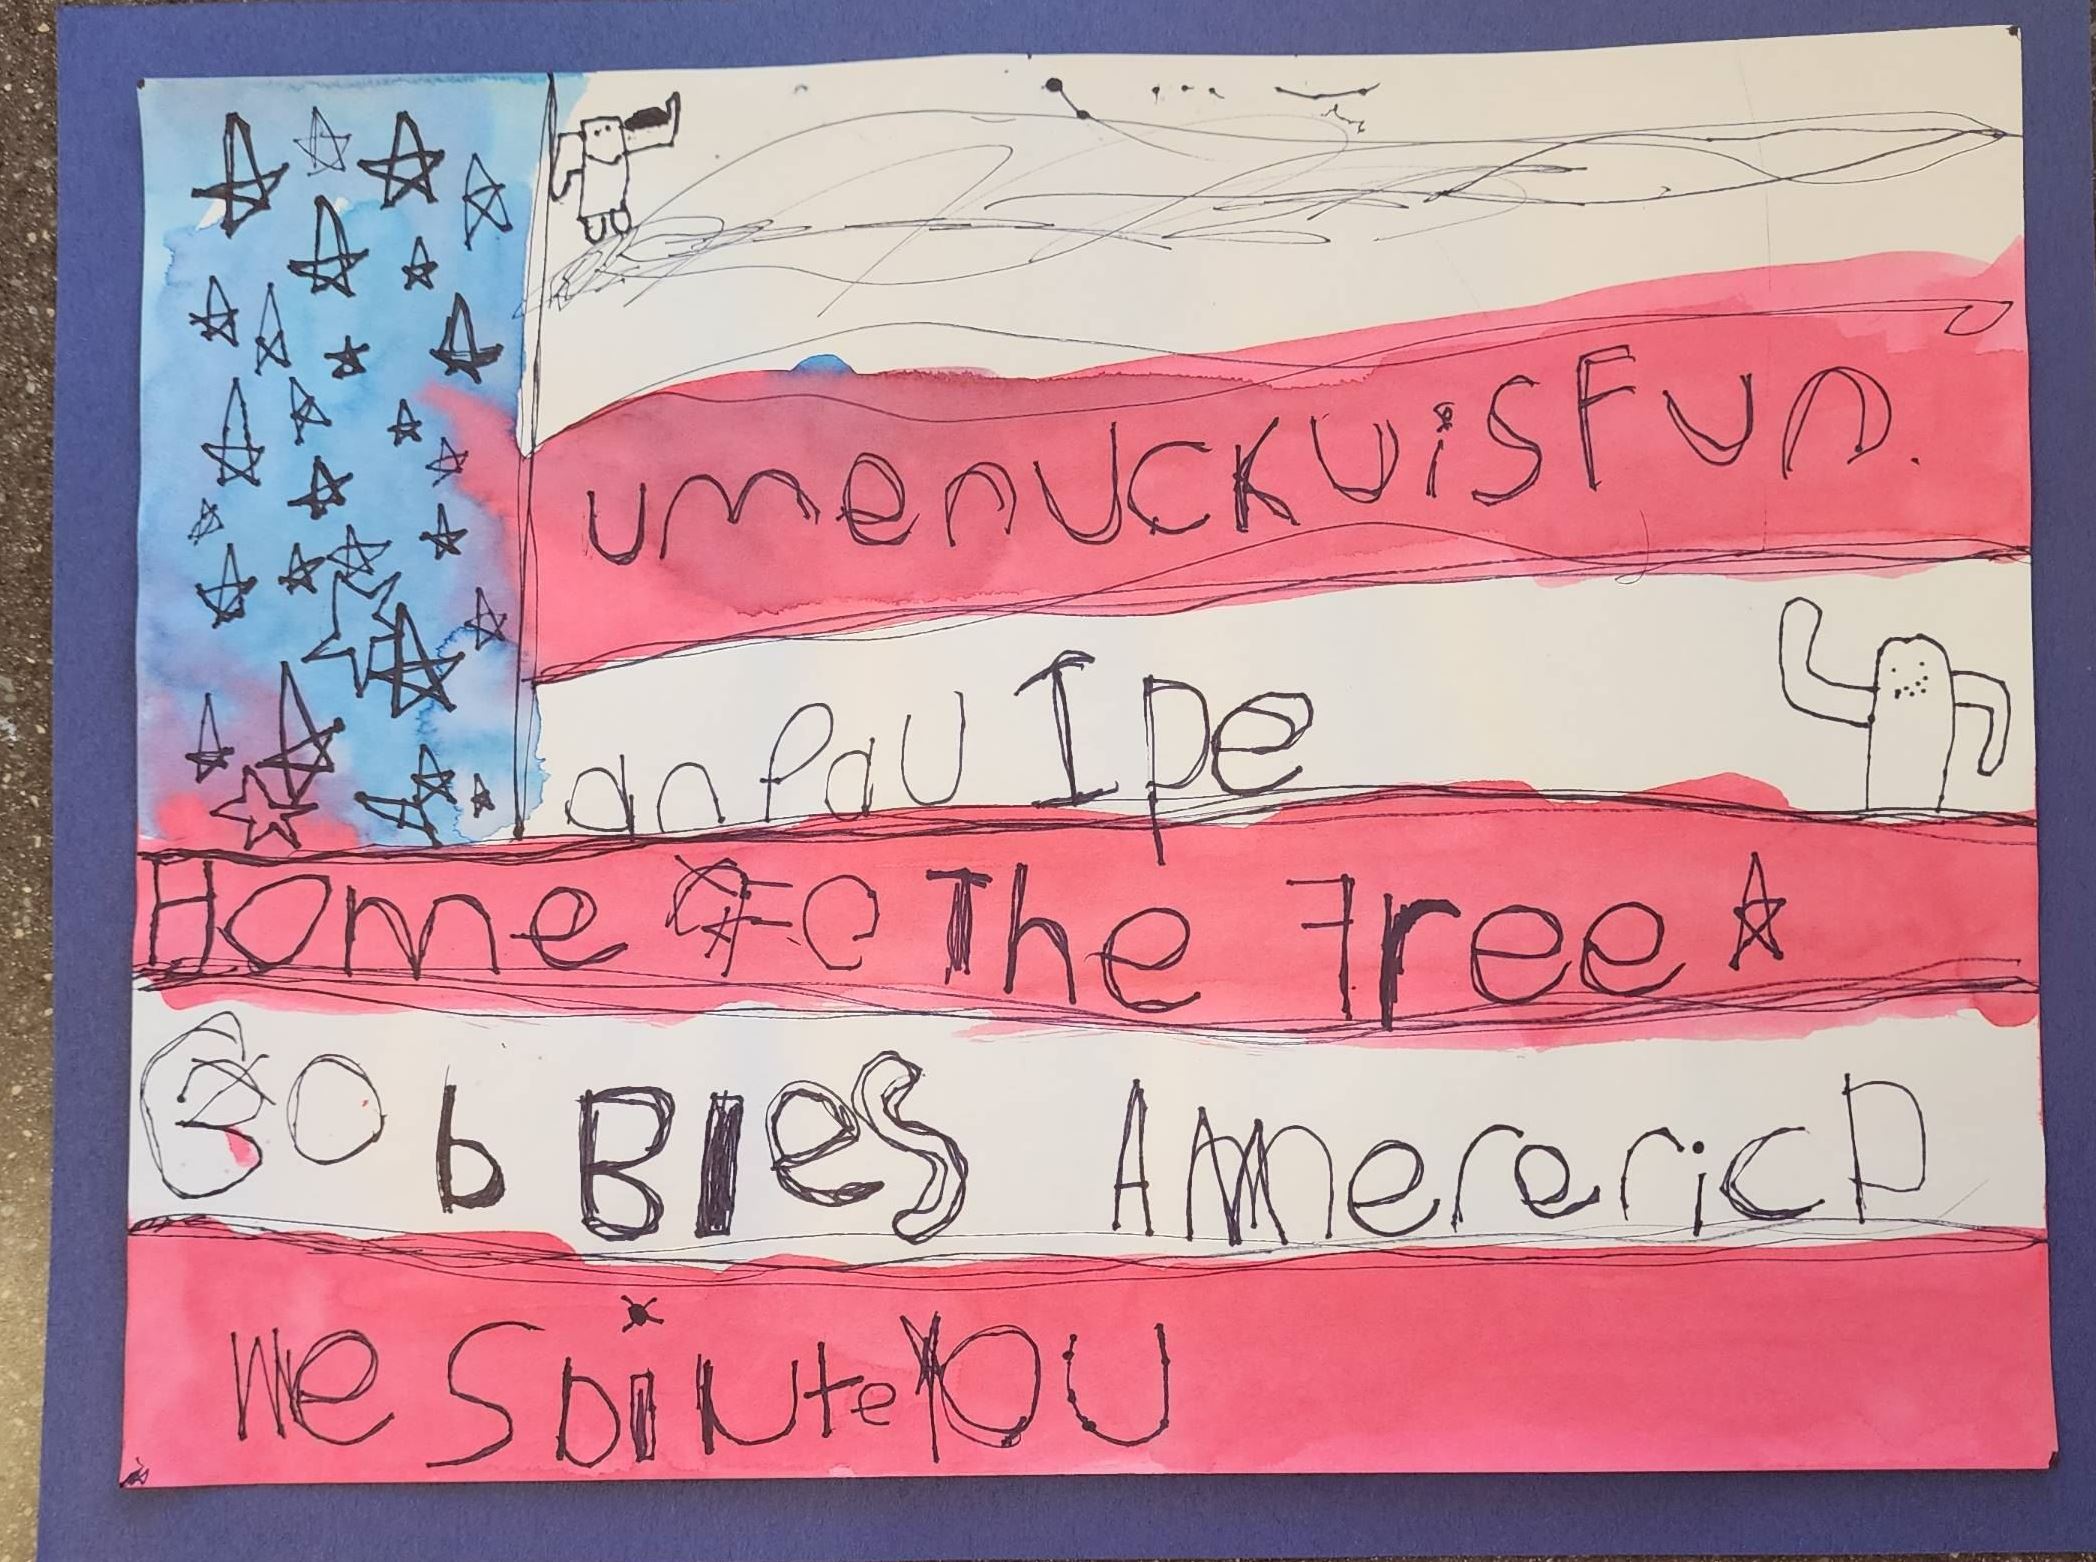 umenUCKUisFun.
an Pau I pe
Home The Tree
BobBles Amerericp
We SpiluteYOU